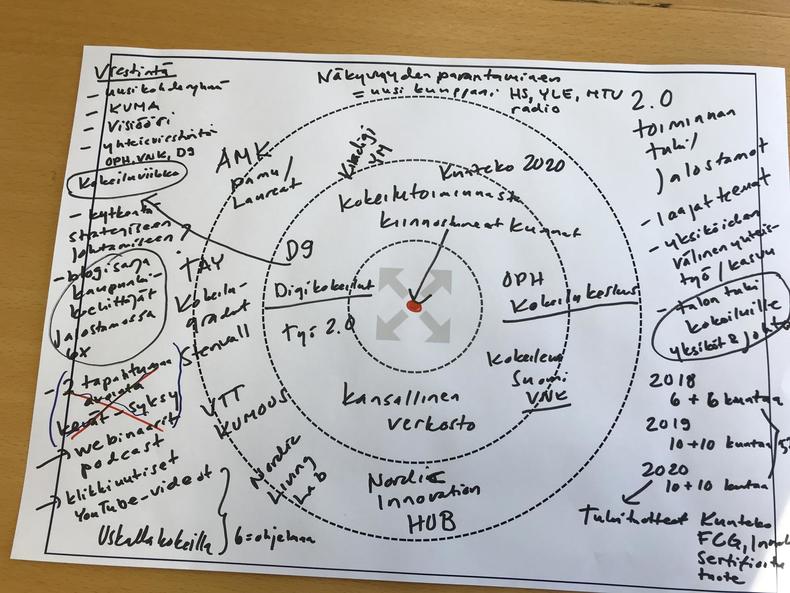 Viestintä
- uusi kohderyhmä
- KUMA
- Visiööri
- yhteisviestintä
OPH, VNK, D9
Kokeiluviikko
- kytkentä
strategiseen
johtamiseen?
- blogisarja
kaupunki-
kehittäjät
Jalostamossa
6x
- 2 tapahtumaa
avointa
kevät syksy
→ webinaarit
podcast
→ klikkiuutiset
YouTube-videot
Uskalla kokeilla
6 = ohjelmaa
Näkyvyyden parantaminen
= uusi kumppani HS, YLE, MTV
radio
AMK
Laurea
Kuntako 2020
Kokeilutoiminnasta
kiinnostuneet kunnat
D9
Digikokeilut
Työ 2.0
TAY
Kokeilu-
gradut
Stenvall
VTT
KUMOUS
Nordic
Living
Lab
OPH
Kokeilukeskus
Kokeileva
Suomi
VNK
Kansallinen
verkosto
Nordic
Innovation
HUB
2.0
toiminnan
tuki/
Jalostamot
- laajat teemat
- yksiköiden
välinen yhteis-
työ / kasvu
- talon tuki
kokeiluille
yksiköt &
2018
6 + 6 kuntaa
2019
10 + 10 kuntaa
2020
10 + 10 kuntaa
Tukituotteet Kunteko
FCG,
Sertifioitu
tuote